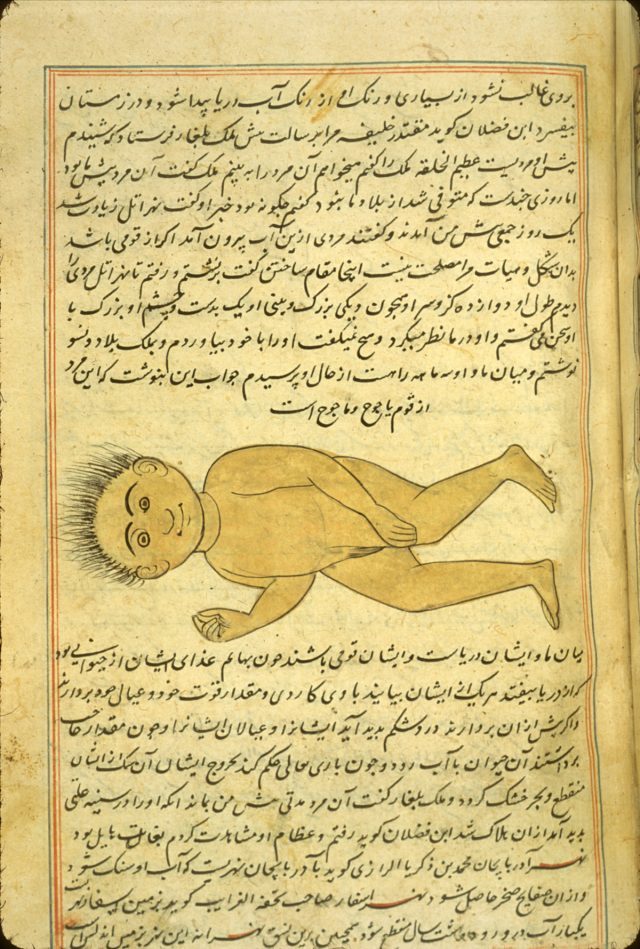 بروی غالب نشود از بسیاری و رنک او از رنک آب دریا پیدا شود و در زمستان
بیفسرد ابن فضلان کوید مقتدر خلیفه مرا برسالت پیش ملک بلغار فرستاد که شنیدم
پیش او مردیست عظیم الخلقه ملک را کفتم میخواهم آن مرد را به بینم ملک کفت آن مرد پیش ما بود
اما روزی چندست که متوفی شد از بلاد ما نبود کفتم چکونه بود خبر او کفت نهر اتل زیادت شد
یک روز جمعی پیش من آمدند و کفتند مردی ازین آب بیرون آمد اکر از قومی باشد
بدان شکل و هیات مرا مصلحت نیست اینجا مقام ساختن کفت برنشستم و رفتم تا نهر اتل مردی را
دیدم طول او دوازده کز و سر او همچون دیکی بزرک و بینی او یک بدست و چشم او بزرک با
او سخن می کفتم و او در ما نظر میکرد و هیچ نمیکفت او را با خود بیاوردم و بملک بلاد ویسو
نوشتم و میان ما و او سه ماهه راهست از حال او پرسیدم جواب این بنوشت که این مرد
از قوم یاجوج و ماجوج است
میان ما و ایشان دریاست و ایشان قومی باشند چون بهایم غذای ایشان از حیوانی بود
که از دریا بیفتد هر یک از ایشان بیایند با وی کاردی و مقدار قوت خود و عیال خود بردارند
و اکر بیش از ان بردارند درد شکم بدید آید ایشانرا و عیالان ایشانرا و چون مقدار حاجت
برداشتند آن حیوان با آب رود و چون باری تعالی حکم کند بخروج ایشان آن سمک از ایشان
منقطع و بحر خشک کردد و ملک بلغار کفت آن مرد مدتی پیش من بماند آنکه او را در سینه علتی
بدید آمد از ان هلاک شد ابن فضلان کوید رفتم و عظام او مشاهدت کردم بغایت هایل بود
نهر آذربایجان محمد بن زکریا الرازی کوید باذربایجان نهریست که آب او سنک شود
و از ان صفایح صخر حاصل شود نهر اسفار صاحب تحفه الغرایب کوید بزمین اسفار نهریست
یکسال آب درو رود و هشت سال منقطع شود همچنین